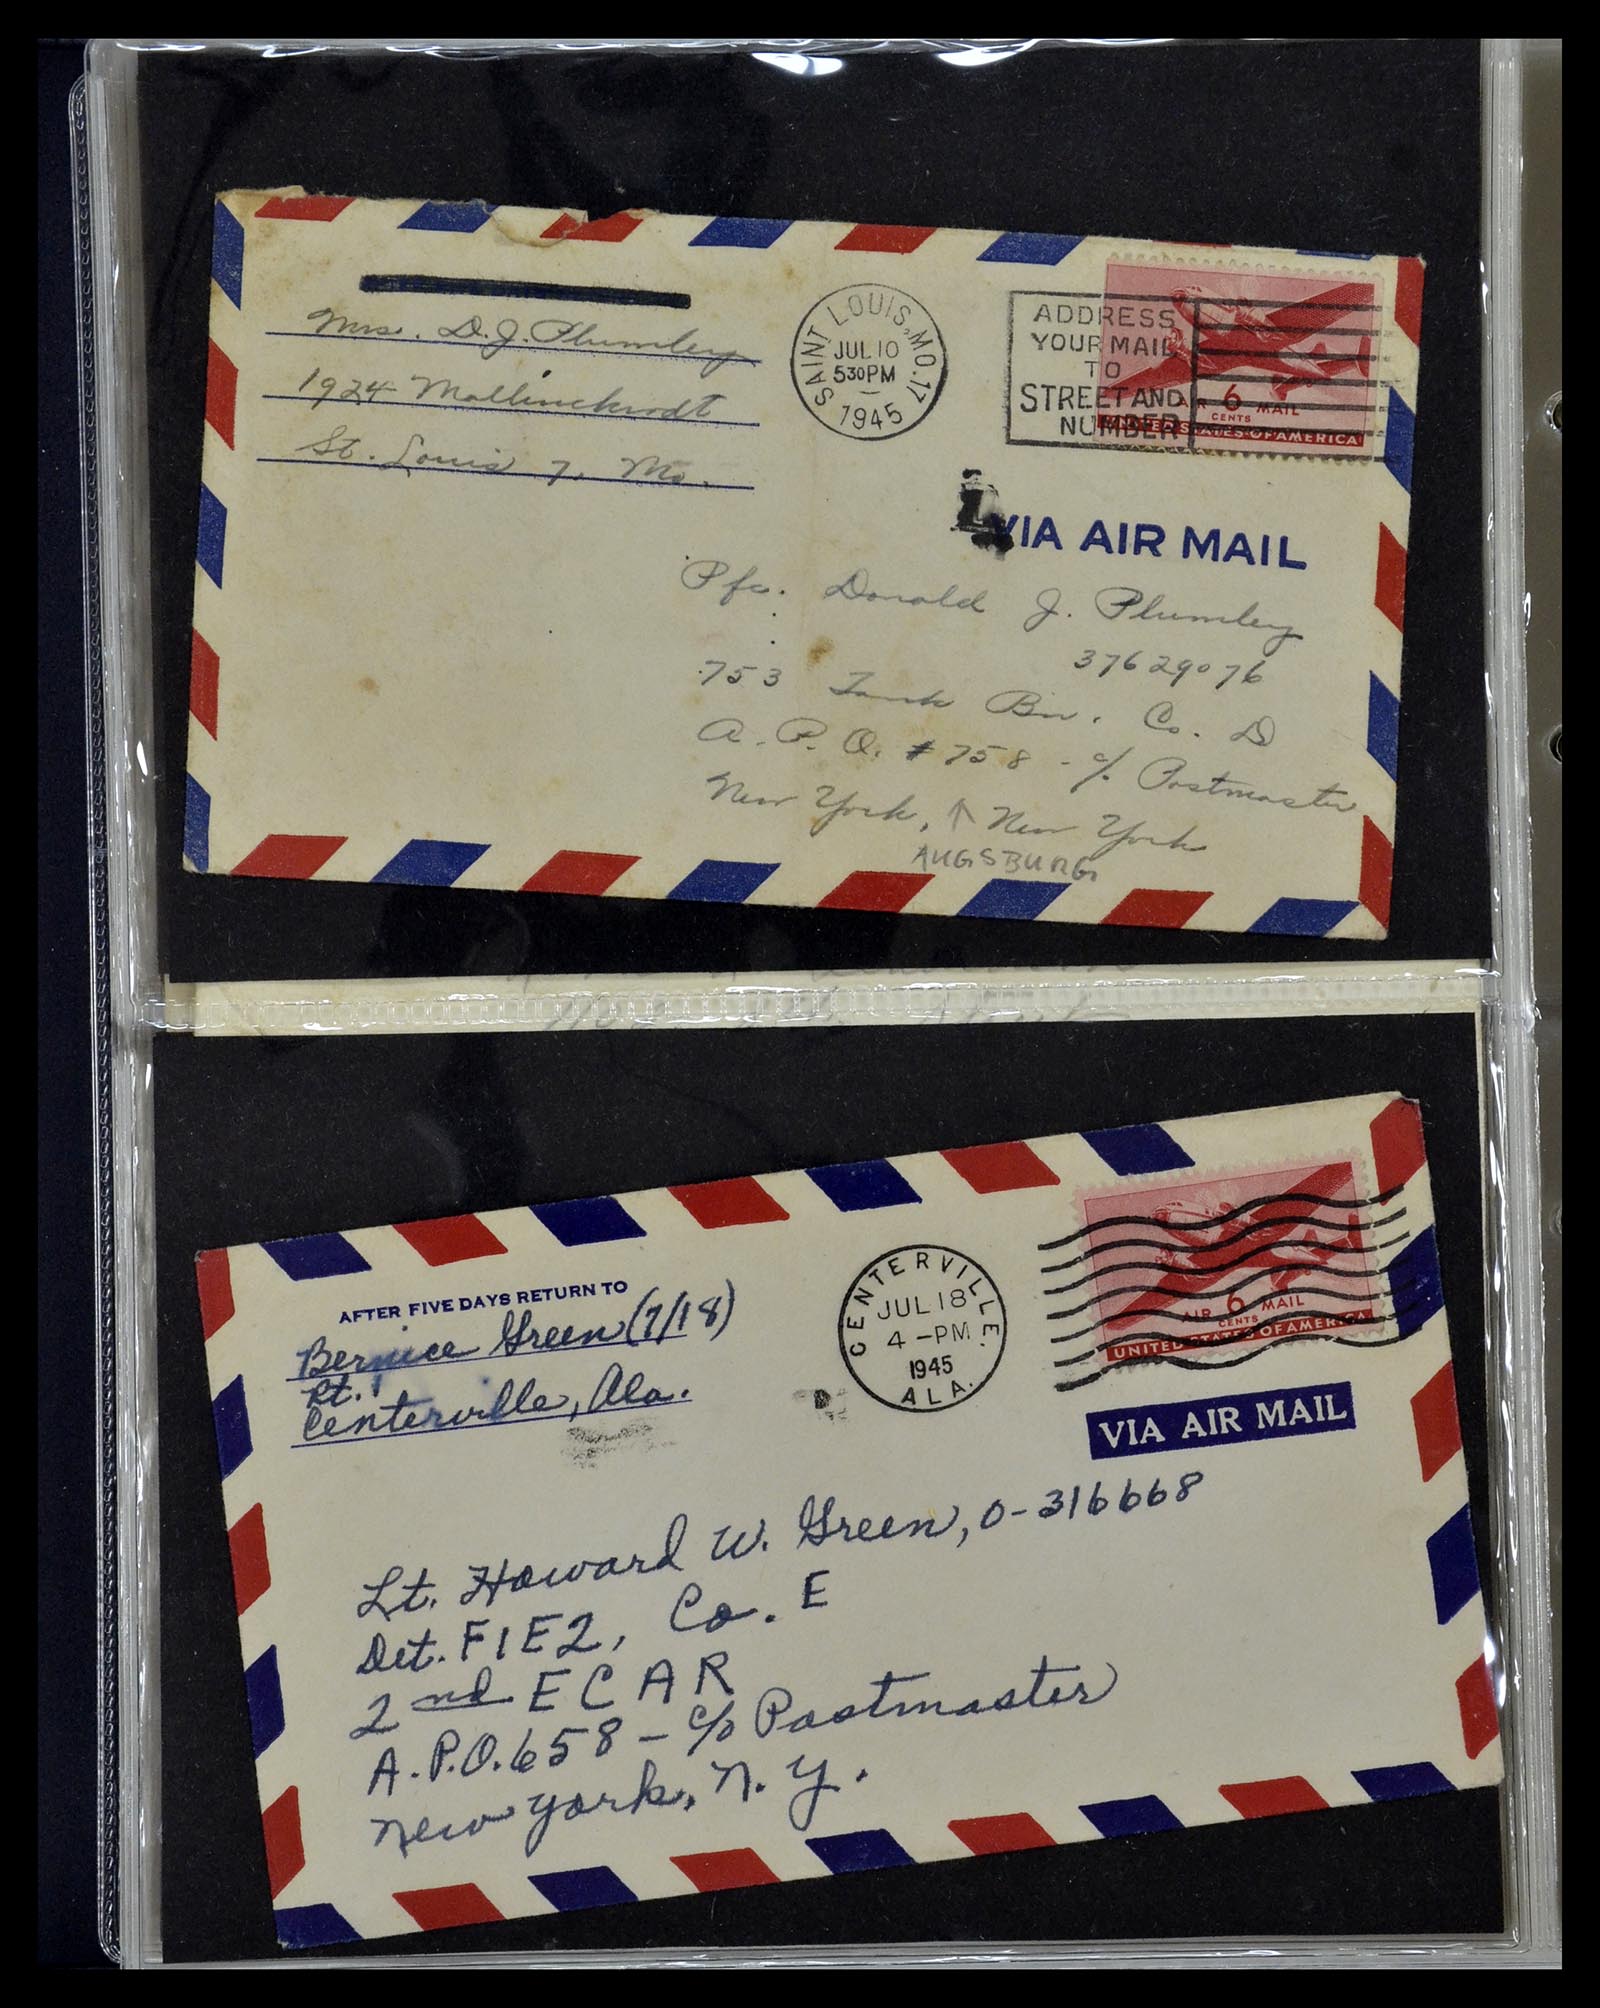 Mrs. D. J. Plumley
1924 Mallinckrodt
St. Louis 7, Mo.
SAINT LOUIS, MO. 17
JUL 10
530 PM
1945
ADDRESS
YOUR MAIL
TO
STREET AND
NUMBER
AIR 6 MAIL
CENTS
UNITED STATES OF AMERICA
VIA AIR MAIL
Pfc. Donald J. Plumley
37629076
753 Tank Bn. Co. D
A.P.O. #758 - c/o Postmaster
New York, ↑ New York
AUGSBURG
AFTER FIVE DAYS RETURN TO
Bernice Green (7/18)
Rt. 1
Centerville, Ala.
CENTERVILLE.
JUL 18
4 - PM
1945
ALA.
AIR 6 MAIL
CENTS
UNITED STATES OF AMERICA
VIA AIR MAIL
Lt. Howard W. Green, O-316668
Det. F1E2, Co. E
2nd ECAR
A.P.O. 658 - c/o Postmaster
New York, N.Y.